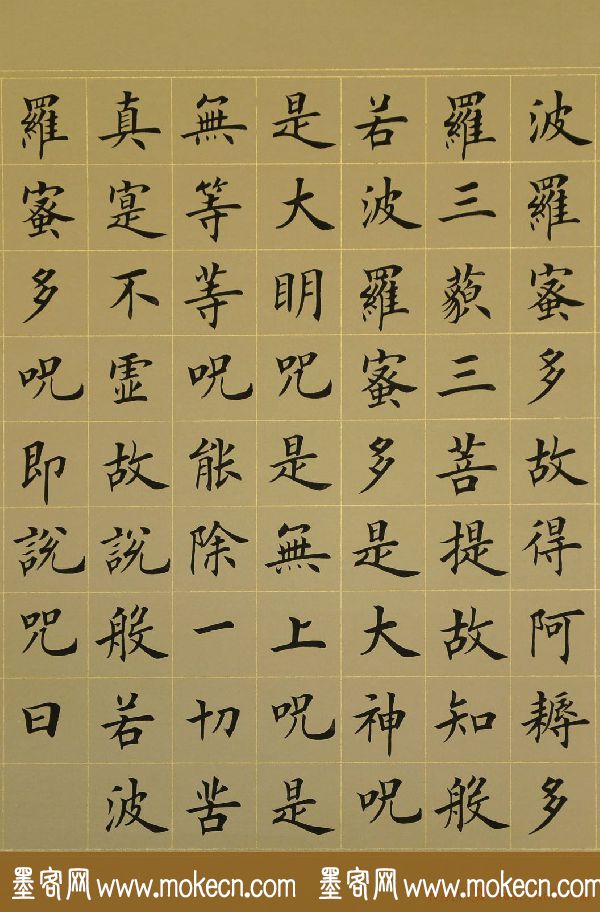 波羅蜜多故得阿耨多
羅三藐三菩提故知般
若波羅蜜多是大神呪
是大明咒是無上呪是
無等等呪能除一切苦
真寔不虛故說般若波
羅蜜多呪即說咒曰
墨客网 www.mokecn.com 墨客网 www.mokecn.com